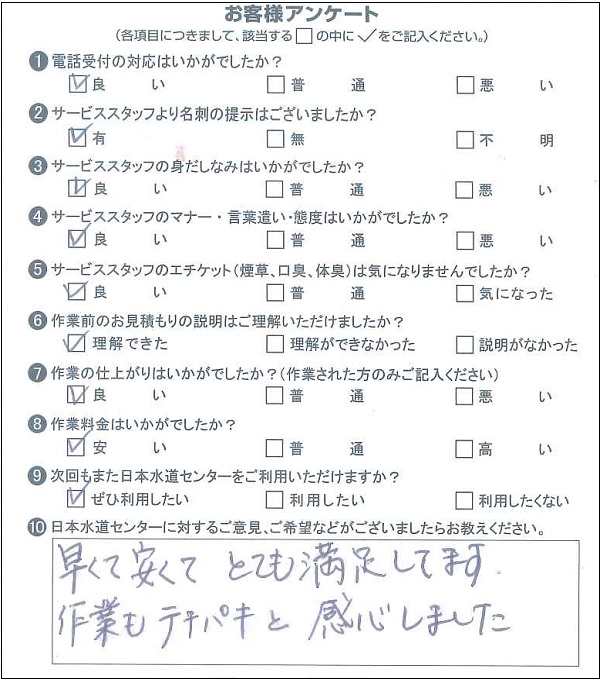 お客様アンケート
(各項目につきまして、該当する□の中に✓をご記入ください。)
❶電話受付の対応はいかがでしたか?
☑良い □普通 □悪い
❷サービススタッフより名刺の提示はございましたか?
☑有 □無 □不明
❸サービススタッフの身だしなみはいかがでしたか?
☑良い □普通 □悪い
❹サービススタッフのマナー・言葉遣い・態度はいかがでしたか?
☑良い □普通 □悪い
❺サービススタッフのエチケット(煙草、口臭、体臭)は気になりませんでしたか?
☑良い □普通 □気になった
❻作業前のお見積もりの説明はご理解いただけましたか?
☑理解できた □理解ができなかった □説明がなかった
❼作業の仕上がりはいかがでしたか?(作業された方のみご記入ください)
☑良い □普通 □悪い
❽作業料金はいかがでしたか?
☑安い □普通 □高い
❾次回もまた日本水道センターをご利用いただけますか?
☑ぜひ利用したい □利用したい □利用したくない
❿日本水道センターに対するご意見、ご希望などがございましたらお教えください。
早くて安くて とても満足してます.
作業もテキパキと 感心しました